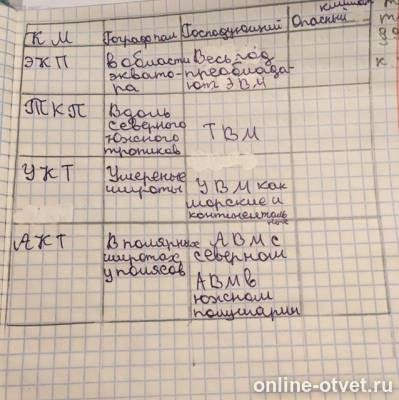 К М
Географ пол
Господующий
климат
Опасный
ЭКП
в области
эквато-
ра
Весь год
преобладa-
ют ЭВМ
ТКП
Вдоль
северного
южного
тропиков
ТВМ
УКТ
Умереные
широты
УВМ как
морские и
континенталь
ные
АКТ
В полярных
широтах
у полясов
АВМ с
северном
АВМ в
южном
полушарии
online-otvet.ru